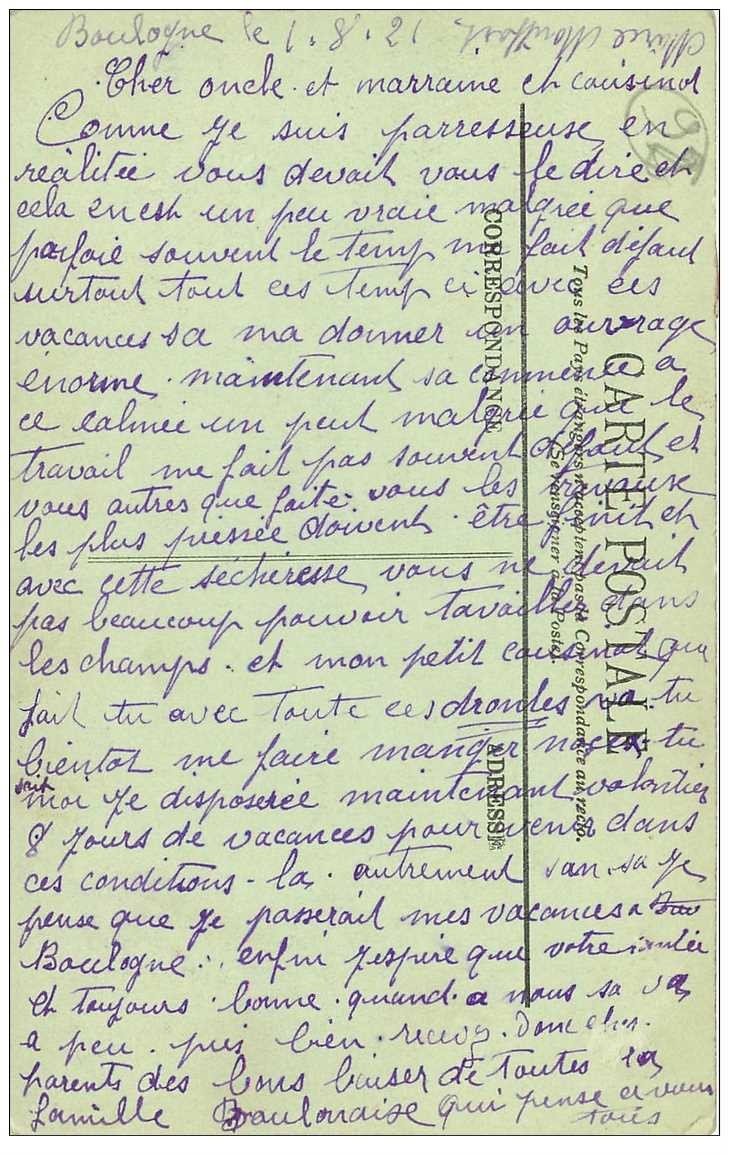 Boulogne le 1.8.21
Cher oncle et marraine et cousinot
Comme je suis parresseuse, en
réalitée vous devait vous le dire et
cela en est un peu vraie malgrée que
parfoie souvent le temp me fait défaut
surtout tout ces temp ci avec ces
vacances sa ma donner un ouvrage
énorme. maintenant sa commence a
ce calmée un peut malgrée que le
travail me fait pas souvent défaut et
vous autres que faite-vous les travause
les plus pressée doivent être finit et
avec cette sécheresse vous ne devait
pas beaucoup pouvoir tavailler dans
les champs. et mon petit cousinot que
fait tu avec toute ces drontes va-tu
bientot me faire manger noces-tu
sait
moi je disposerée maintenant volontier
8 jours de vacances pour venir dans
ces conditions-la. autrement san sa je
pense que je passerait mes vacances a
Boulogne. enfin j'espire que votre santée
et toujours bonne. quand a nous sa va
a peu. près bien. recevez. Donc cher.
parents des bons baiser de toutes la
famille Boulonaise qui pense a vous
tous
CARTE POSTALE
Tous les Pays étrangers n'acceptent pas la Correspondance au recto.
(Se renseigner à la Poste).
CORRESPONDANCE
ADRESSE